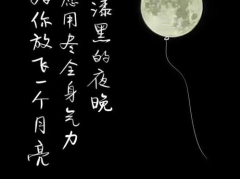 漆黑的夜晚
應用尽全身气力
你放飞一个月亮